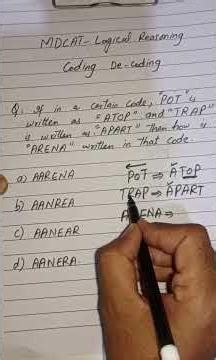 MDCAT- Logical Reasoning
Coding De-coding
Q. If in a certain code, "POT" is
written as "ATOP" and "TRAP"
is written as "APART" then how is
"ARENA" written in that code.
a) AARENA
b) AANREA
c) AANEAR
d) AANERA.
POT ⇒ ATOP
TRAP ⇒ APART
ARENA ⇒